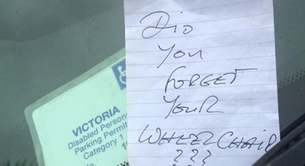 VICTORIA
Disabled Persons
Parking Permit
Category 1
DID
YOU
FORGET
YOUR
WHEELCHAIR
???